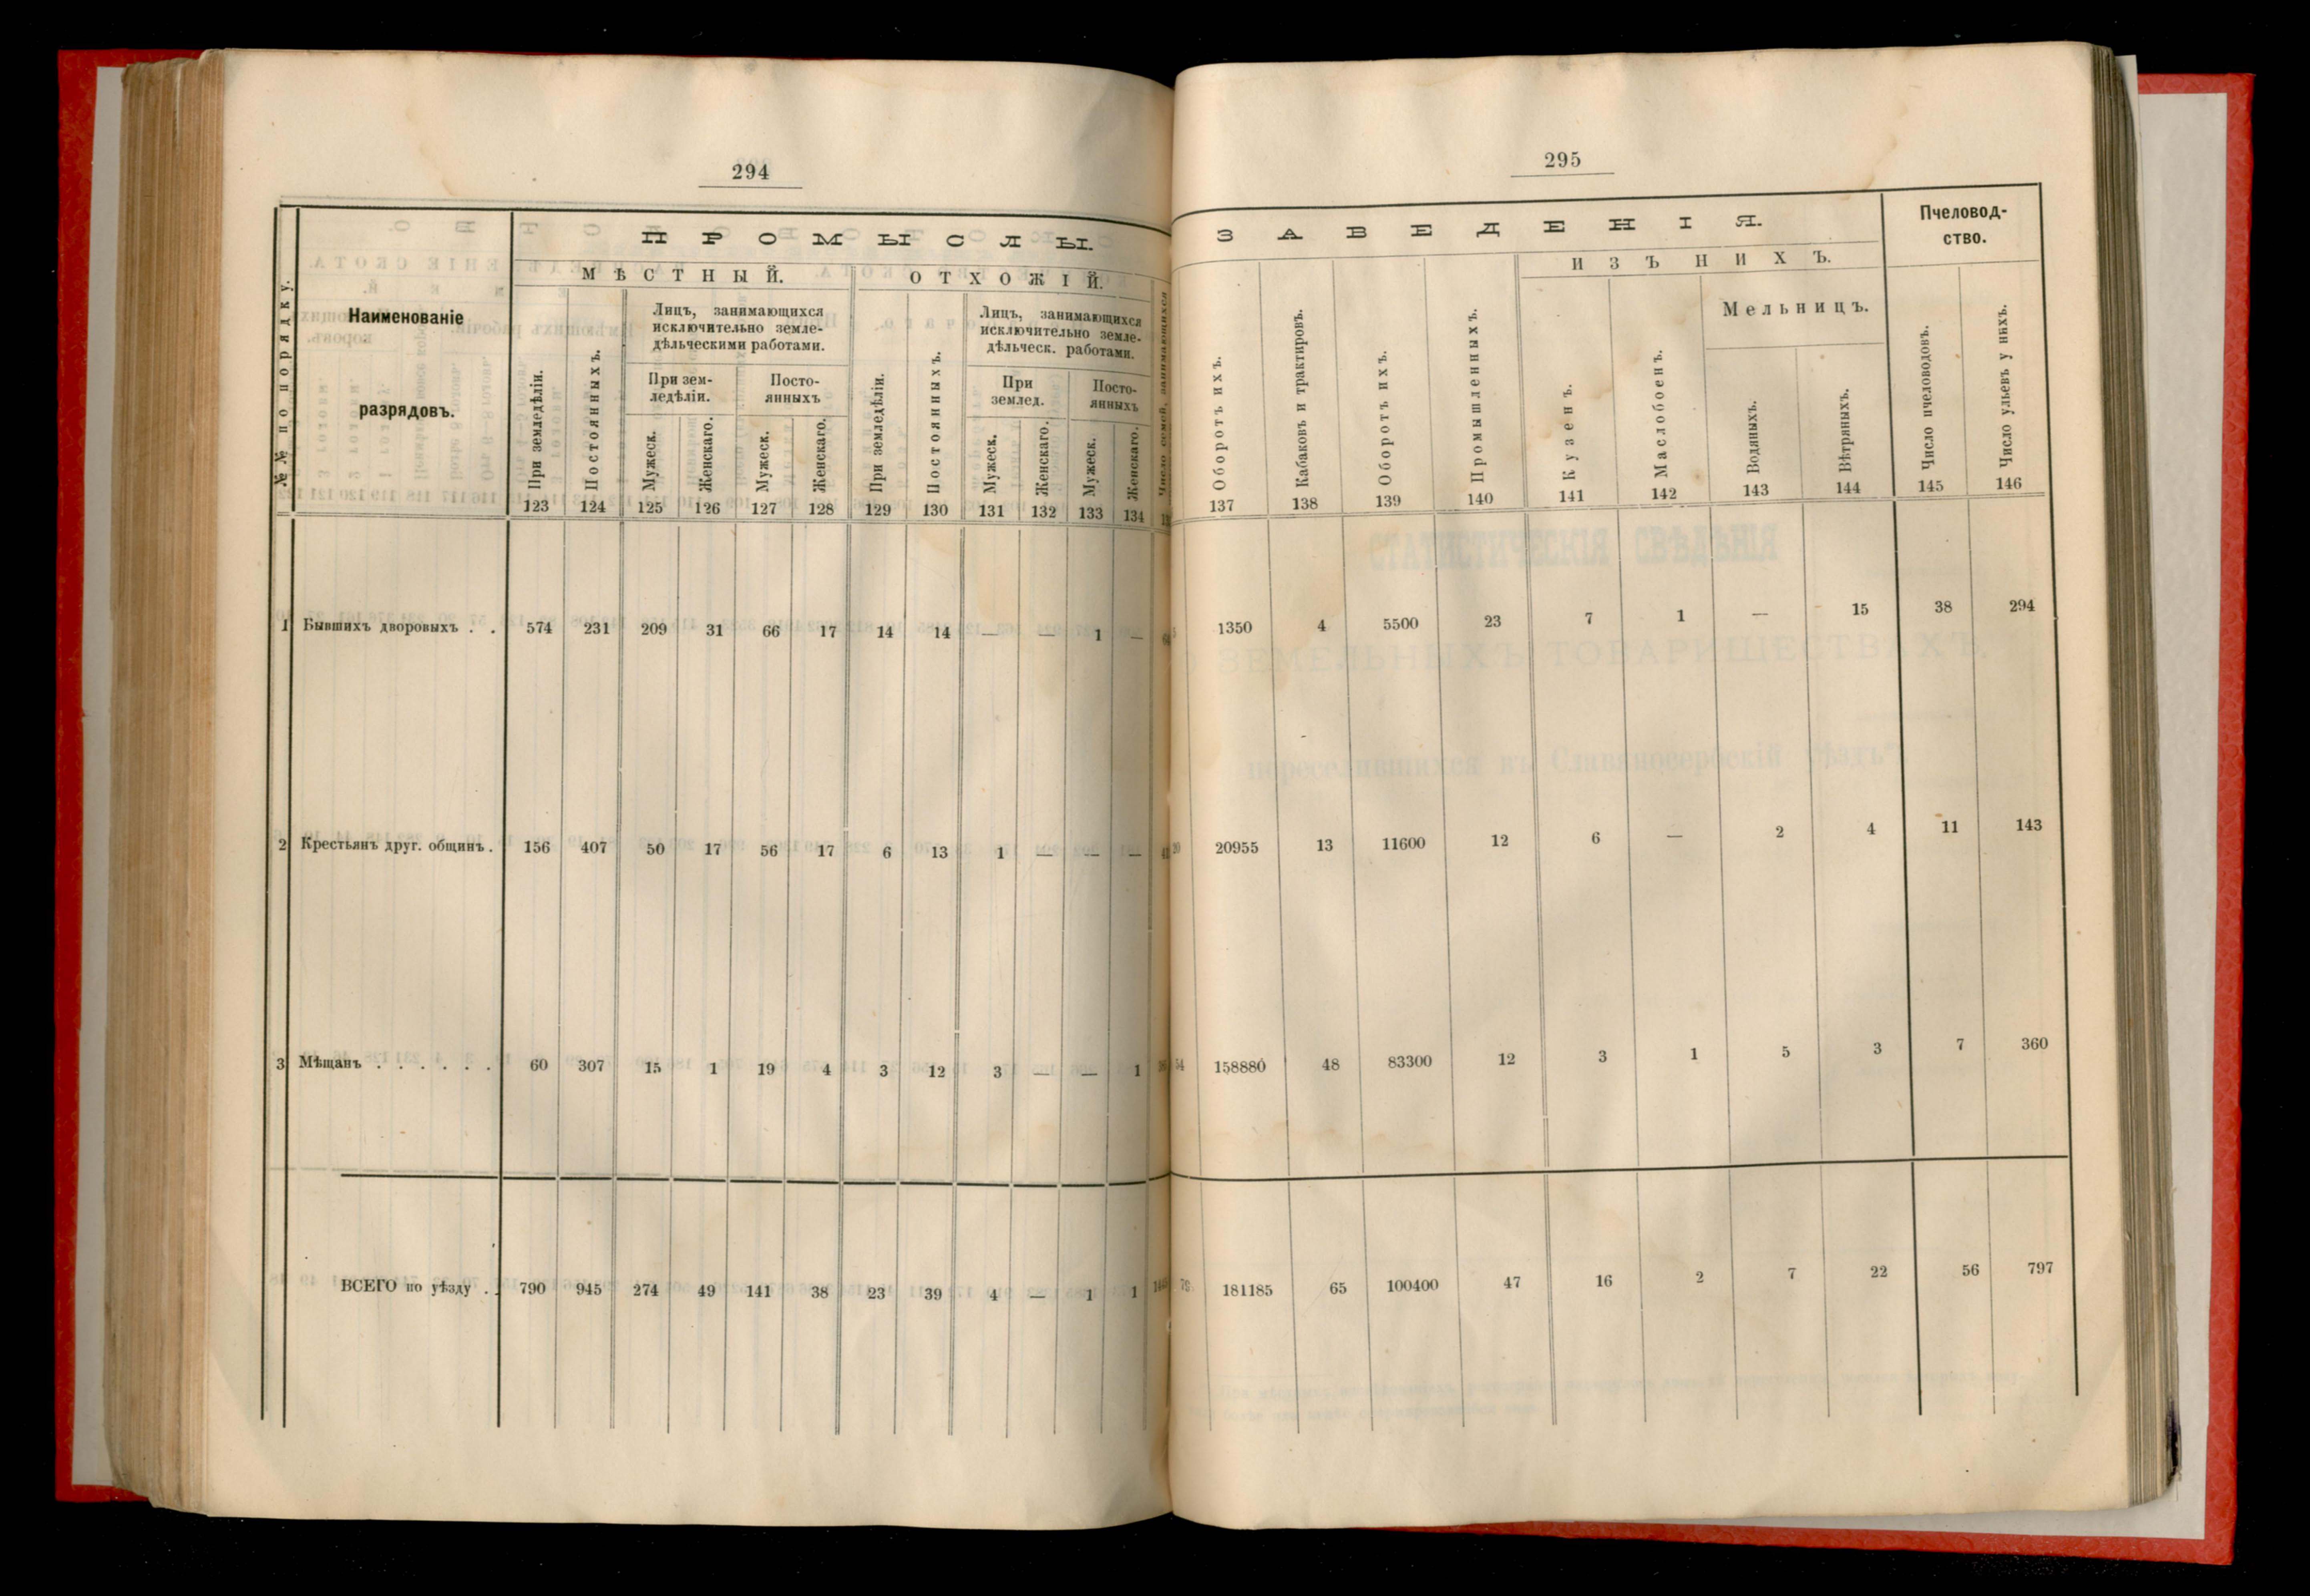 294
№№ по порядку.
Наименованіе
разрядовъ.
ПРОМЫСЛЫ.
МѢСТНЫЙ.
ОТХОЖІЙ.
При земледѣліи.
Постоянныхъ.
Лицъ, занимающихся
исключительно земле-
дѣльческими работами.
При зем-
ледѣліи.
Посто-
янныхъ
Мужеск.
Женскаго.
Мужеск.
Женскаго.
При земледѣліи.
Постоянныхъ.
Лицъ, занимающихся
исключительно земле-
дѣльческ. работами.
При
землед.
Посто-
янныхъ
Мужеск.
Женскаго.
Мужеск.
Женскаго.
Число семей, занимающихся
123 124 125 126 127 128 129 130 131 132 133 134
1 Бывшихъ дворовыхъ . . 574 231 209 31 66 17 14 14 — — 1 —
2 Крестьянъ друг. общинъ . 156 407 50 17 56 17 6 13 1 — — —
3 Мѣщанъ . . . . . . 60 307 15 1 19 4 3 12 3 — — 1
ВСЕГО по уѣзду . 790 945 274 49 141 38 23 39 4 — 1 1
295
ЗАВЕДЕНІЯ.
Пчеловод-
ство.
ИЗЪ НИХЪ.
Мельницъ.
Оборотъ ихъ.
Кабаковъ и трактировъ.
Оборотъ ихъ.
Промышленныхъ.
Кузенъ.
Маслобоенъ.
Водяныхъ.
Вѣтряныхъ.
Число пчеловодовъ.
Число ульевъ у нихъ.
137 138 139 140 141 142 143 144 145 146
1350 4 5500 23 7 1 — 15 38 294
20 20955 13 11600 12 6 — 2 4 11 143
54 158880 48 83300 12 3 1 5 3 7 360
79 181185 65 100400 47 16 2 7 22 56 797